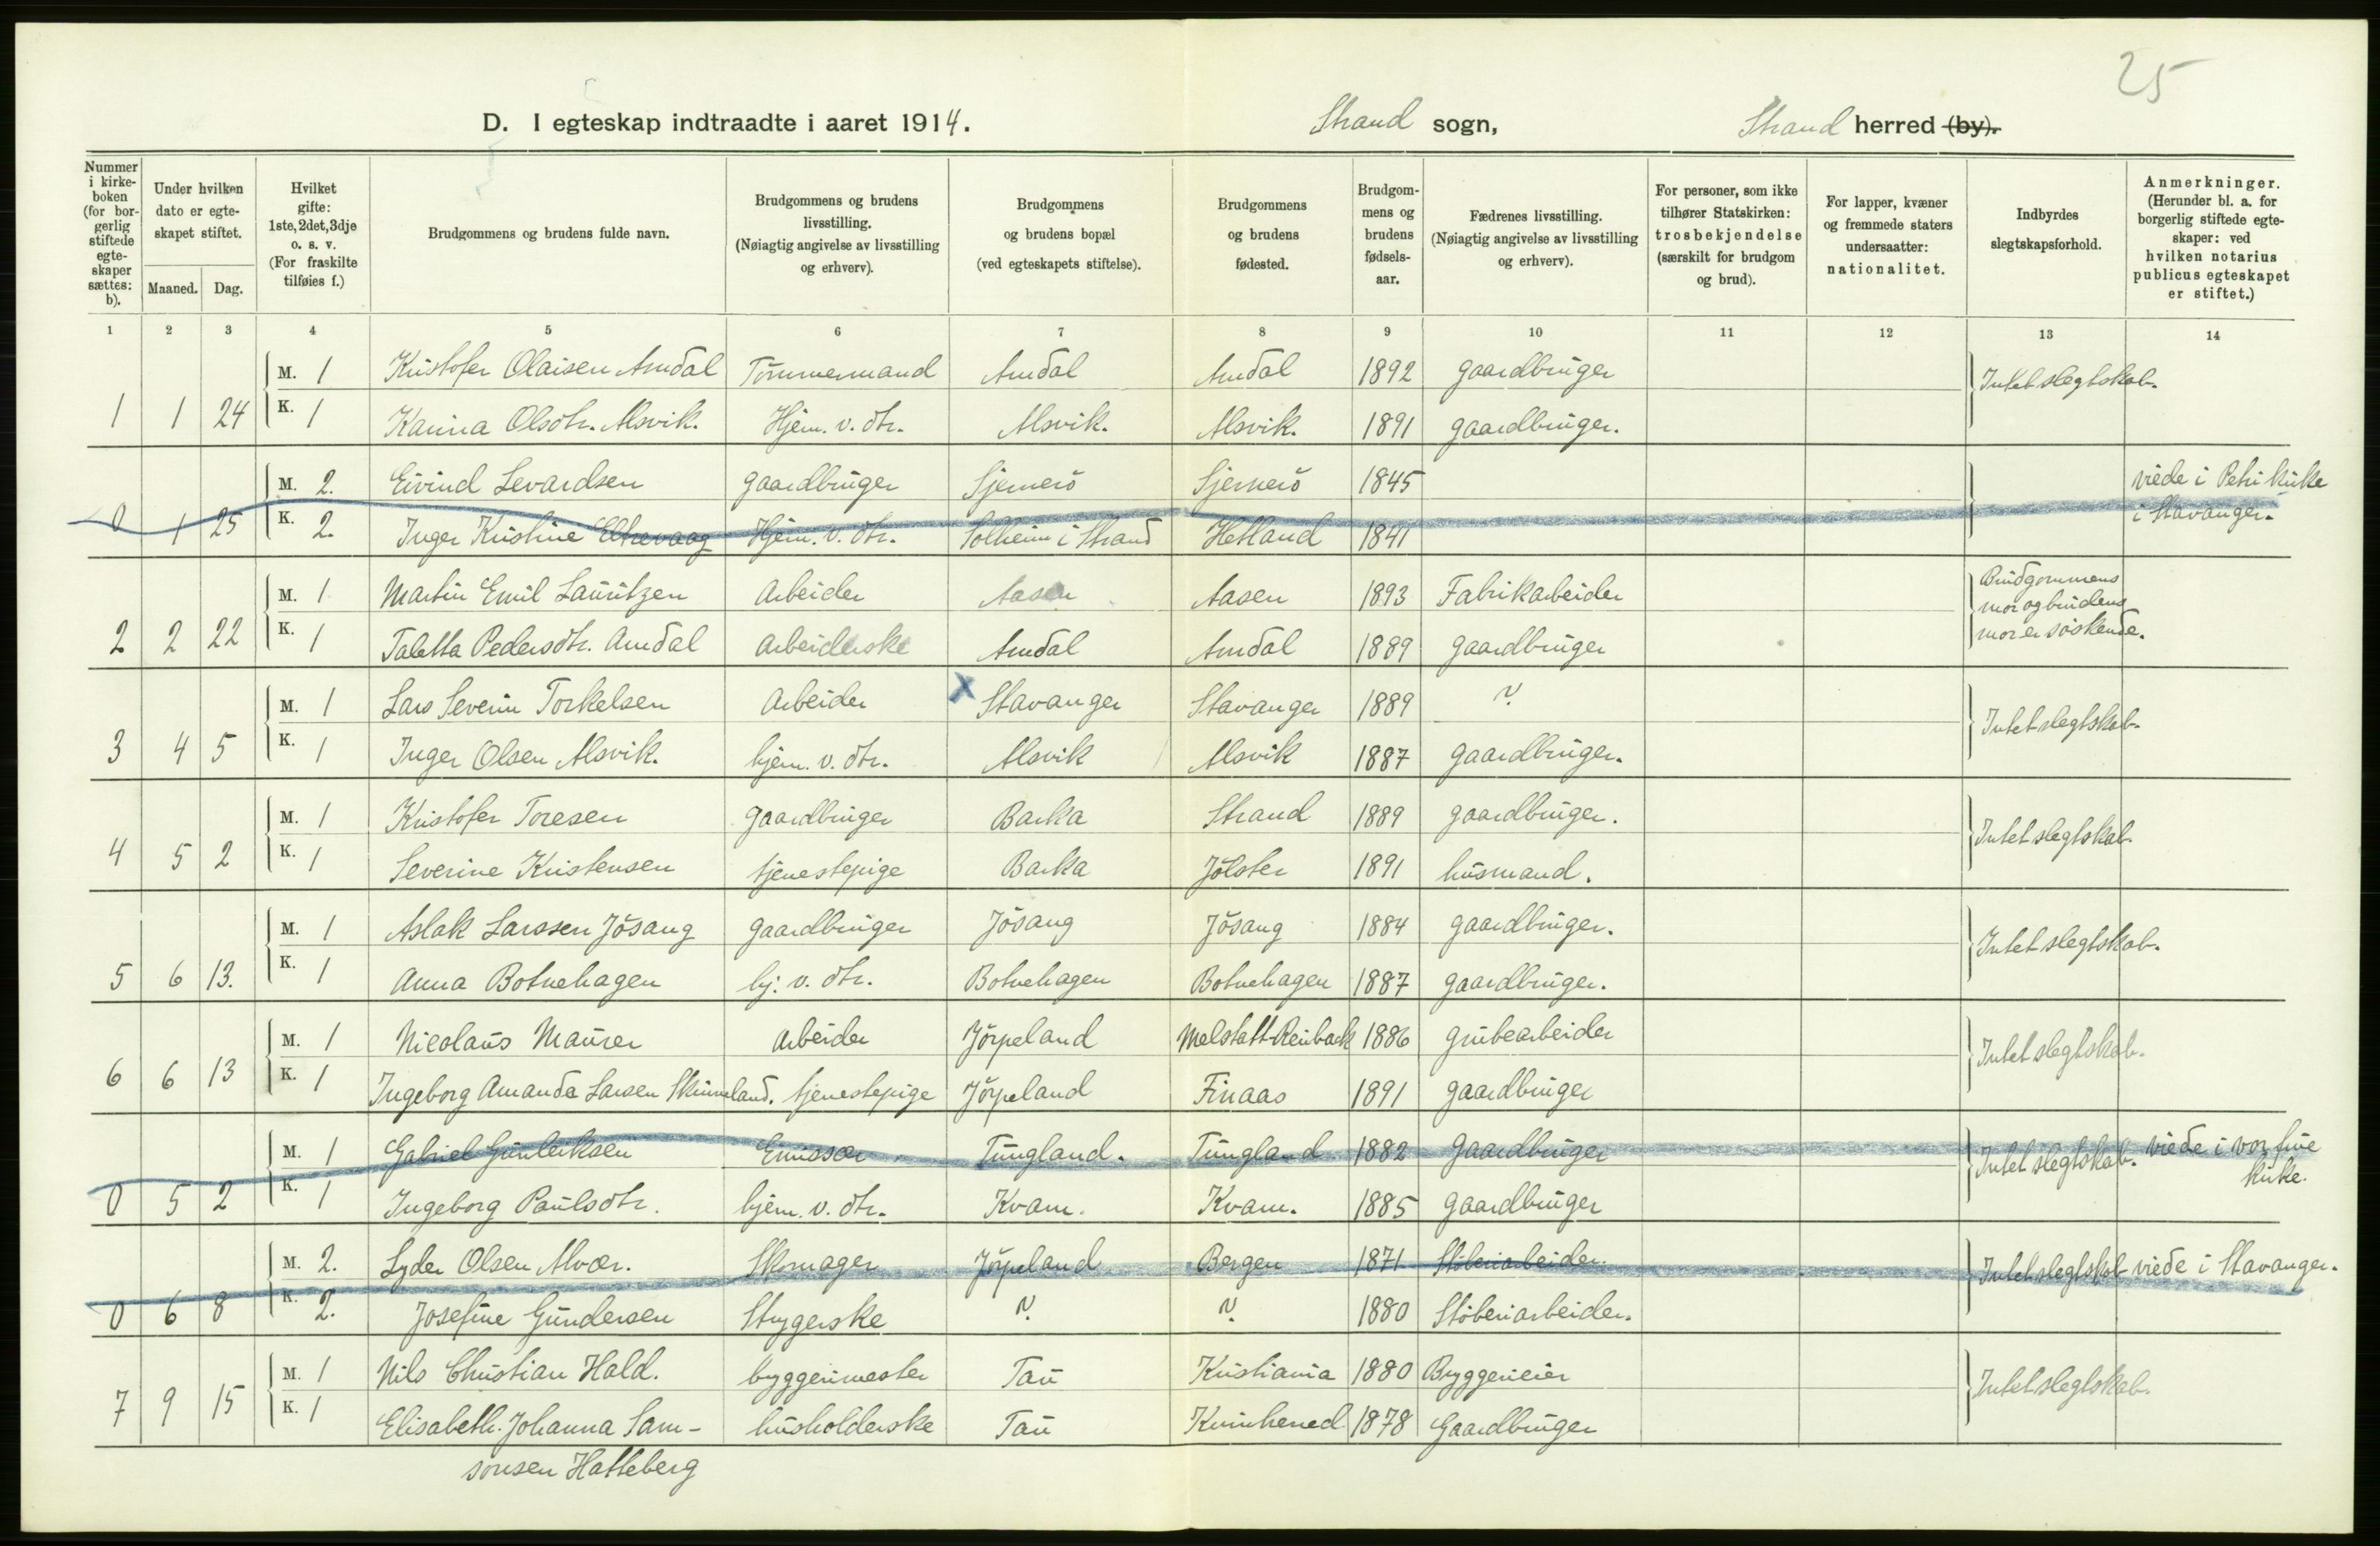 25
D. I egteskap indtraadte i aaret 1914. Strand sogn, Strand herred (by).
Nummer i kirkeboken (for borgerlig stiftede egteskaper sættes: b).
Under hvilken dato er egteskapet stiftet.
Maaned. Dag.
Hvilket gifte: 1ste, 2det, 3dje o. s. v. (For fraskilte tilføies f.)
Brudgommens og brudens fulde navn.
Brudgommens og brudens livsstilling. (Nøiagtig angivelse av livsstilling og erhverv).
Brudgommens og brudens bopæl (ved egteskapets stiftelse).
Brudgommens og brudens fødested.
Brudgommens og brudens fødselsaar.
Fædrenes livsstilling. (Nøiagtig angivelse av livsstilling og erhverv).
For personer, som ikke tilhører Statskirken: trosbekjendelse (særskilt for brudgom og brud).
For lapper, kvæner og fremmede staters undersaatter: nationalitet.
Indbyrdes slegtskapsforhold.
Anmerkninger. (Herunder bl. a. for borgerlig stiftede egteskaper: ved hvilken notarius publicus egteskapet er stiftet.)
1 2 3 4 5 6 7 8 9 10 11 12 13 14
M. 1 Kristofer Olaisen Amdal Tömmermand Amdal Amdal 1892 gaardbruger Intet slegtskab.
1 1 24 K. 1 Karina Olsdtr. Alsvik. Hjem. v. dtr. Alsvik. Alsvik. 1891 gaardbruger.
M. 2. Eivind Sevardsen gaardbruger Sjernerö Sjernerö 1845 viede i Petri kirke
0 1 25 K. 2. Inger Kristine Eltrevaag Hjem. v. dtr. Solheim i Strand Hetland 1841 i Stavanger.
M. 1 Martin Emil Lauritzen Arbeider Aasen Aasen 1893 Fabrikarbeider Brudgommens mor og brudens
2 2 22 K. 1 Taletta Pedersdtr. Amdal arbeiderske Amdal Amdal 1889 gaardbruger mor er söskende.
M. 1 Lars Severin Torkelsen Arbeider x Stavanger Stavanger 1889 ? Intet slegtskab.
3 4 5 K. 1 Inger Olsen Alsvik. hjem. v. dtr. Alsvik Alsvik 1887 gaardbruger.
M. 1 Kristofer Toresen gaardbruger Barka Strand 1889 gaardbruger. Intet slegtskab.
4 5 2 K. 1 Severine Kristensen tjenestepige Barka Jölster 1891 husmand.
M. 1 Aslak Larssen Jösang gaardbruger Jösang Jösang 1884 gaardbruger. Intet slegtskab.
5 6 13. K. 1 Anna Botnehagen hj. v. dtr. Botnehagen Botnehagen 1887 gaardbruger.
M. 1 Nicolaus Maurer Arbeider Jörpeland Melstatt-Reinbach 1886 grubearbeider Intet slegtskab.
6 6 13 K. 1 Ingeborg Amanda Larsen Skimmeland. tjenestepige Jörpeland Finaas 1891 gaardbruger
M. 1 Gabriel Gunleiksen Emissær Tungland. Tungland 1882 Gaardbruger Intet slegtskab. viede i vor frue
0 5 2 K. 1 Ingeborg Paulsdtr. hjem. v. dtr. Kvam. Kvam. 1885 gaardbruger kirke.
M. 2. Lyder Olsen Alvær. Skomager Jörpeland Bergen 1871 Stöberiarbeider. Intet slegtskab viede i Stavanger.
0 6 8 K. 2. Josefine Gundersen Strygerske ? ? 1880 Stöberiarbeider.
M. 1 Nils Christian Hald. bryggerimester Tau Kristiania 1880 Bryggerieier Intet slegtskab.
7 9 15 K. 1 Elisabeth. Johanna Sam- husholderske Tau Kvinherred 1878 Gaardbruger
sonsen Hatteberg